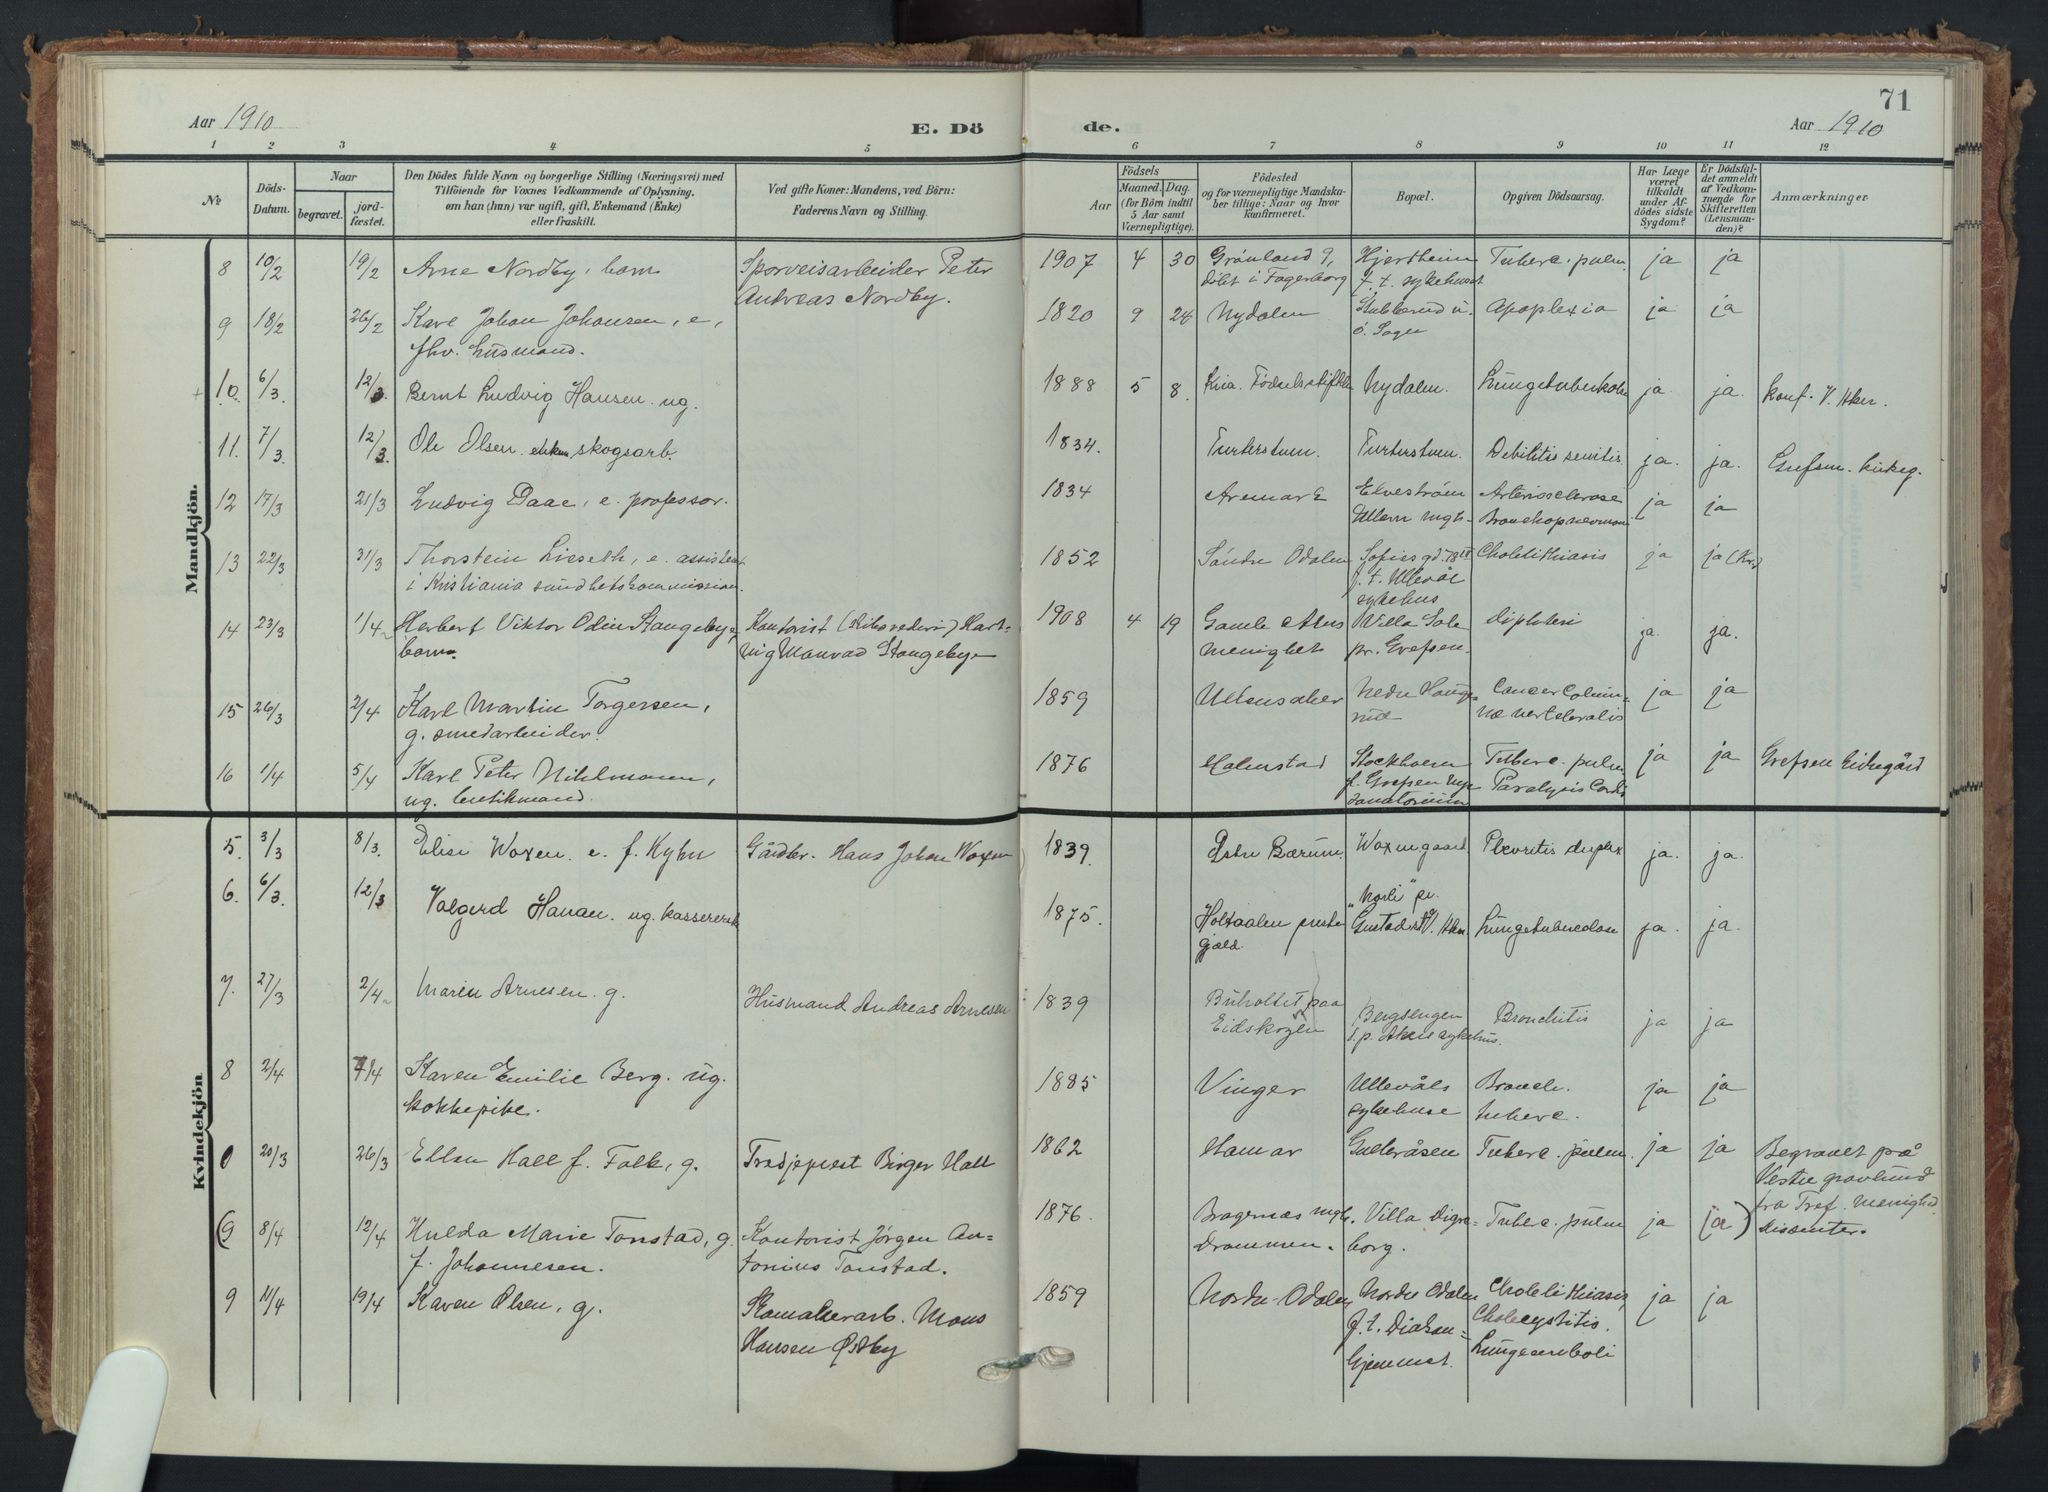 71
Aar 1910
E. Dö
de.
Aar 1910
1 2 3 4 5 6 7 8 9 10 11 12
№
Döds-
Datum.
Naar
begravet.
jord-
fæstet.
Den Dödes fulde Navn og borgerlige Stilling (Næringsvei) med
Tilföiende for Voxnes Vedkommende af Oplysning,
om han (hun) var ugift, gift, Enkemand (Enke)
eller fraskilt.
Ved gifte Koner: Mandens, ved Börn:
Faderens Navn og Stilling.
Födsels
Aar
Maaned. Dag.
(for Börn indtil
5 Aar samt
Værnepligtige).
Födested
og for værnepligtige Mandska-
ber tillige: Naar og hvor
konfirmeret.
Bopæl.
Opgiven Dödsaarsag.
Har Læge
været
tilkaldt
under Af-
dödes sidste
Sygdom?
Er Dödsfal-
det anmeldt
af Vedkom-
mende for
Skifteretten
(Lensman-
den)?
Anmærkninger
Mandkjön.
8 10/2 19/2 Arne Nordby, barn Sporveisarbeider Peter 1907 4 30 Grønland ?, Hjertheim Tuberc. pulm. ja ja
Andreas Nordby. døbt i Fagerborg f. t. sykehuset
9 18/2 26/2 Karl Johan Johansen, e, 1820 9 24 Nydalen ö. Sogn Apoplexia ja ja
fhv. husmand.
10. 6/3. 12/3. Bernt Ludvig Hansen ug. 1888 5 8. Kria. Nydalen. ja. ja. Konf. V. Aker.
11. 7/3. 12/3. Ole Olsen skogsarb. 1834. Turterstuen. Debilitis senilis. ja. ja. Grefsen kirkeg.
12 17/3 21/3 Ludvig Daae, e. professor. 1834 Aremark Arteriosclerose ja ja
Ullern mgh.
13 22/3 31/3 Thorstein Lieseth, e. assistent 1852 Søndre Odalen Sofies gd. 78 Cholelithiasis ja ja (Kr.)
i Kristiania sundhetskommission. f. t. Ullevål
sykehus
14 23/3 1/4 Herbert Viktor Odin Stangebye, Kontorist 1908 4 19 Gamle Akers Villa Sole Diphteri ja. ja.
barn. Stangebye menighet pr. Grefsen.
15 26/3 2/4 Karl Martin Torgersen, 1859 Ullensaker Nedre Hauge- Cancer Colum- ja ja
g. smedarbeider. rud næ vertebralis
16 1/4 5/4 Karl Peter Nihlmann, 1876 Halmstad Stockholm Tuberc. pulm. ja ja Grefsen kirkegård
ug. butikmand. Sanatorium Paralysis Cordis
Kvindekjön
5. 3/3 8/3. Elise Woxen. e. f. Kyhn Gårdbr. Hans Johan Woxen 1839. Østre Bærum. Woxengaard Plevritis duplex ja. ja.
6. 6/3. 12/3 Valgerd Hanan. ug. kassererske 1875. Holtaalen preste- "Norli" pr. Lungetuberculose ja. ja.
gjæld. Gustad st. V. Aker.
7. 27/3 2/4 Maren Arnesen. g. Husmand Andreas Arnesen 1839 Buholtet paa Bergsengen Bronchitis ja ja
Eidskogen p. Akers sykehus.
8 2/4 7/4 Karen Emilie Berg. ug. 1885 Vinger Ullevåls Bronch. ja ja
kokkepike. sykehuse tuberc.
0 20/3 26/3 Ellen Hall f. Falk, g. Tredjeprest Birger Hall 1862 Hamar Gulleråsen Tuberc. pulm. ja ja Begravet på
Vestre gravlund
(9 8/4 12/4 Hulda Marie Tonstad, g. Kontorist Jørgen An- 1876. Bragernæs mgh. Villa Digra- Tuberc. pulm ja ja) fra Tref. Menighed.
f. Johannesen. tonius Tonstad. Drammen. borg. Dissenter.
9 11/4 19/4 Karen Olsen, g. Skomakerarb. Mons 1859 Nordre Odalen Nordre Odalen Cholelithiasis, ja ja
Hansen Østby f. t. Diakon- Cholecystitis.
hjemmet. Lungeemboli